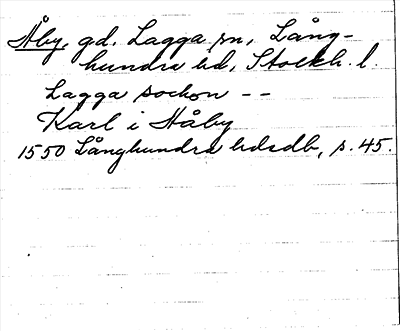 Åby, gd. Lagga sn, Lång-
hundra hd, Stockh. l.
Lagga sockon --
Karl i Håby
1550 Långhundra hdsdb, s. 45.